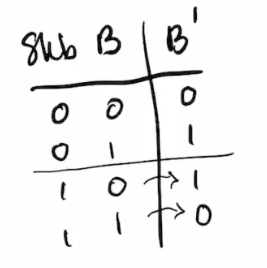 Sub B B'
0 0 0
0 1 1
1 0 → 1
1 1 → 0